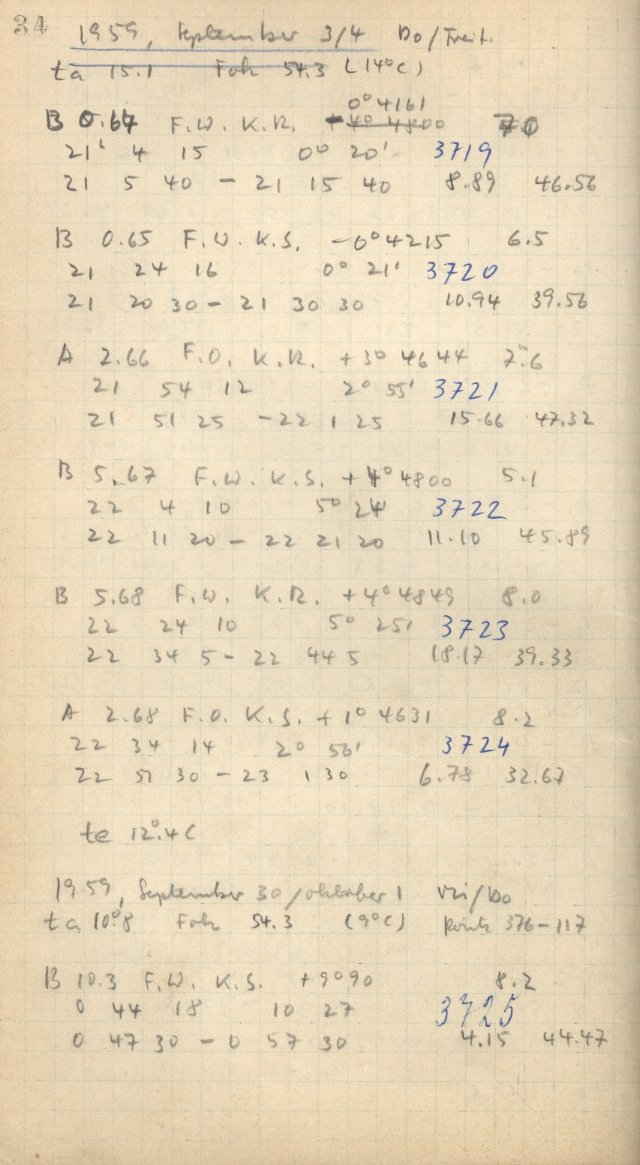 34
1959, September 3/4 Do/Freit.
ta 15.1 Fok 54.3 (14°C)
0° 4161
B 0.67 F.W. K.R. + 4° 4800 7.0
21 4 15 0° 20' 3719
21 5 40 - 21 15 40 8.89 46.56
B 0.65 F.W. K.S. -0° 4215 6.5
21 24 16 0° 21' 3720
21 20 30 - 21 30 30 10.94 39.56
A 2.66 F.O. K.R. +3° 4644 7.6
21 54 12 2° 55' 3721
21 51 25 - 22 1 25 15.66 47.32
B 5.67 F.W. K.S. +4° 4800 5.1
22 4 10 5° 24' 3722
22 11 20 - 22 21 20 11.10 45.89
B 5.68 F.W. K.R. +4° 4849 8.0
22 24 10 5° 25' 3723
22 34 5 - 22 44 5 18.17 39.33
A 2.68 F.O. K.S. +1° 4631 8.2
22 34 14 2° 56' 3724
22 51 30 - 23 1 30 6.78 32.67
te 12°.4C
1959, September 30/Oktober 1 Mi/Do
ta 10°.8 Fok 54.3 (9°C) 376-117
B 10.3 F.W. K.S. +9° 90 8.2
0 44 18 10 27 3725
0 47 30 - 0 57 30 4.15 44.47